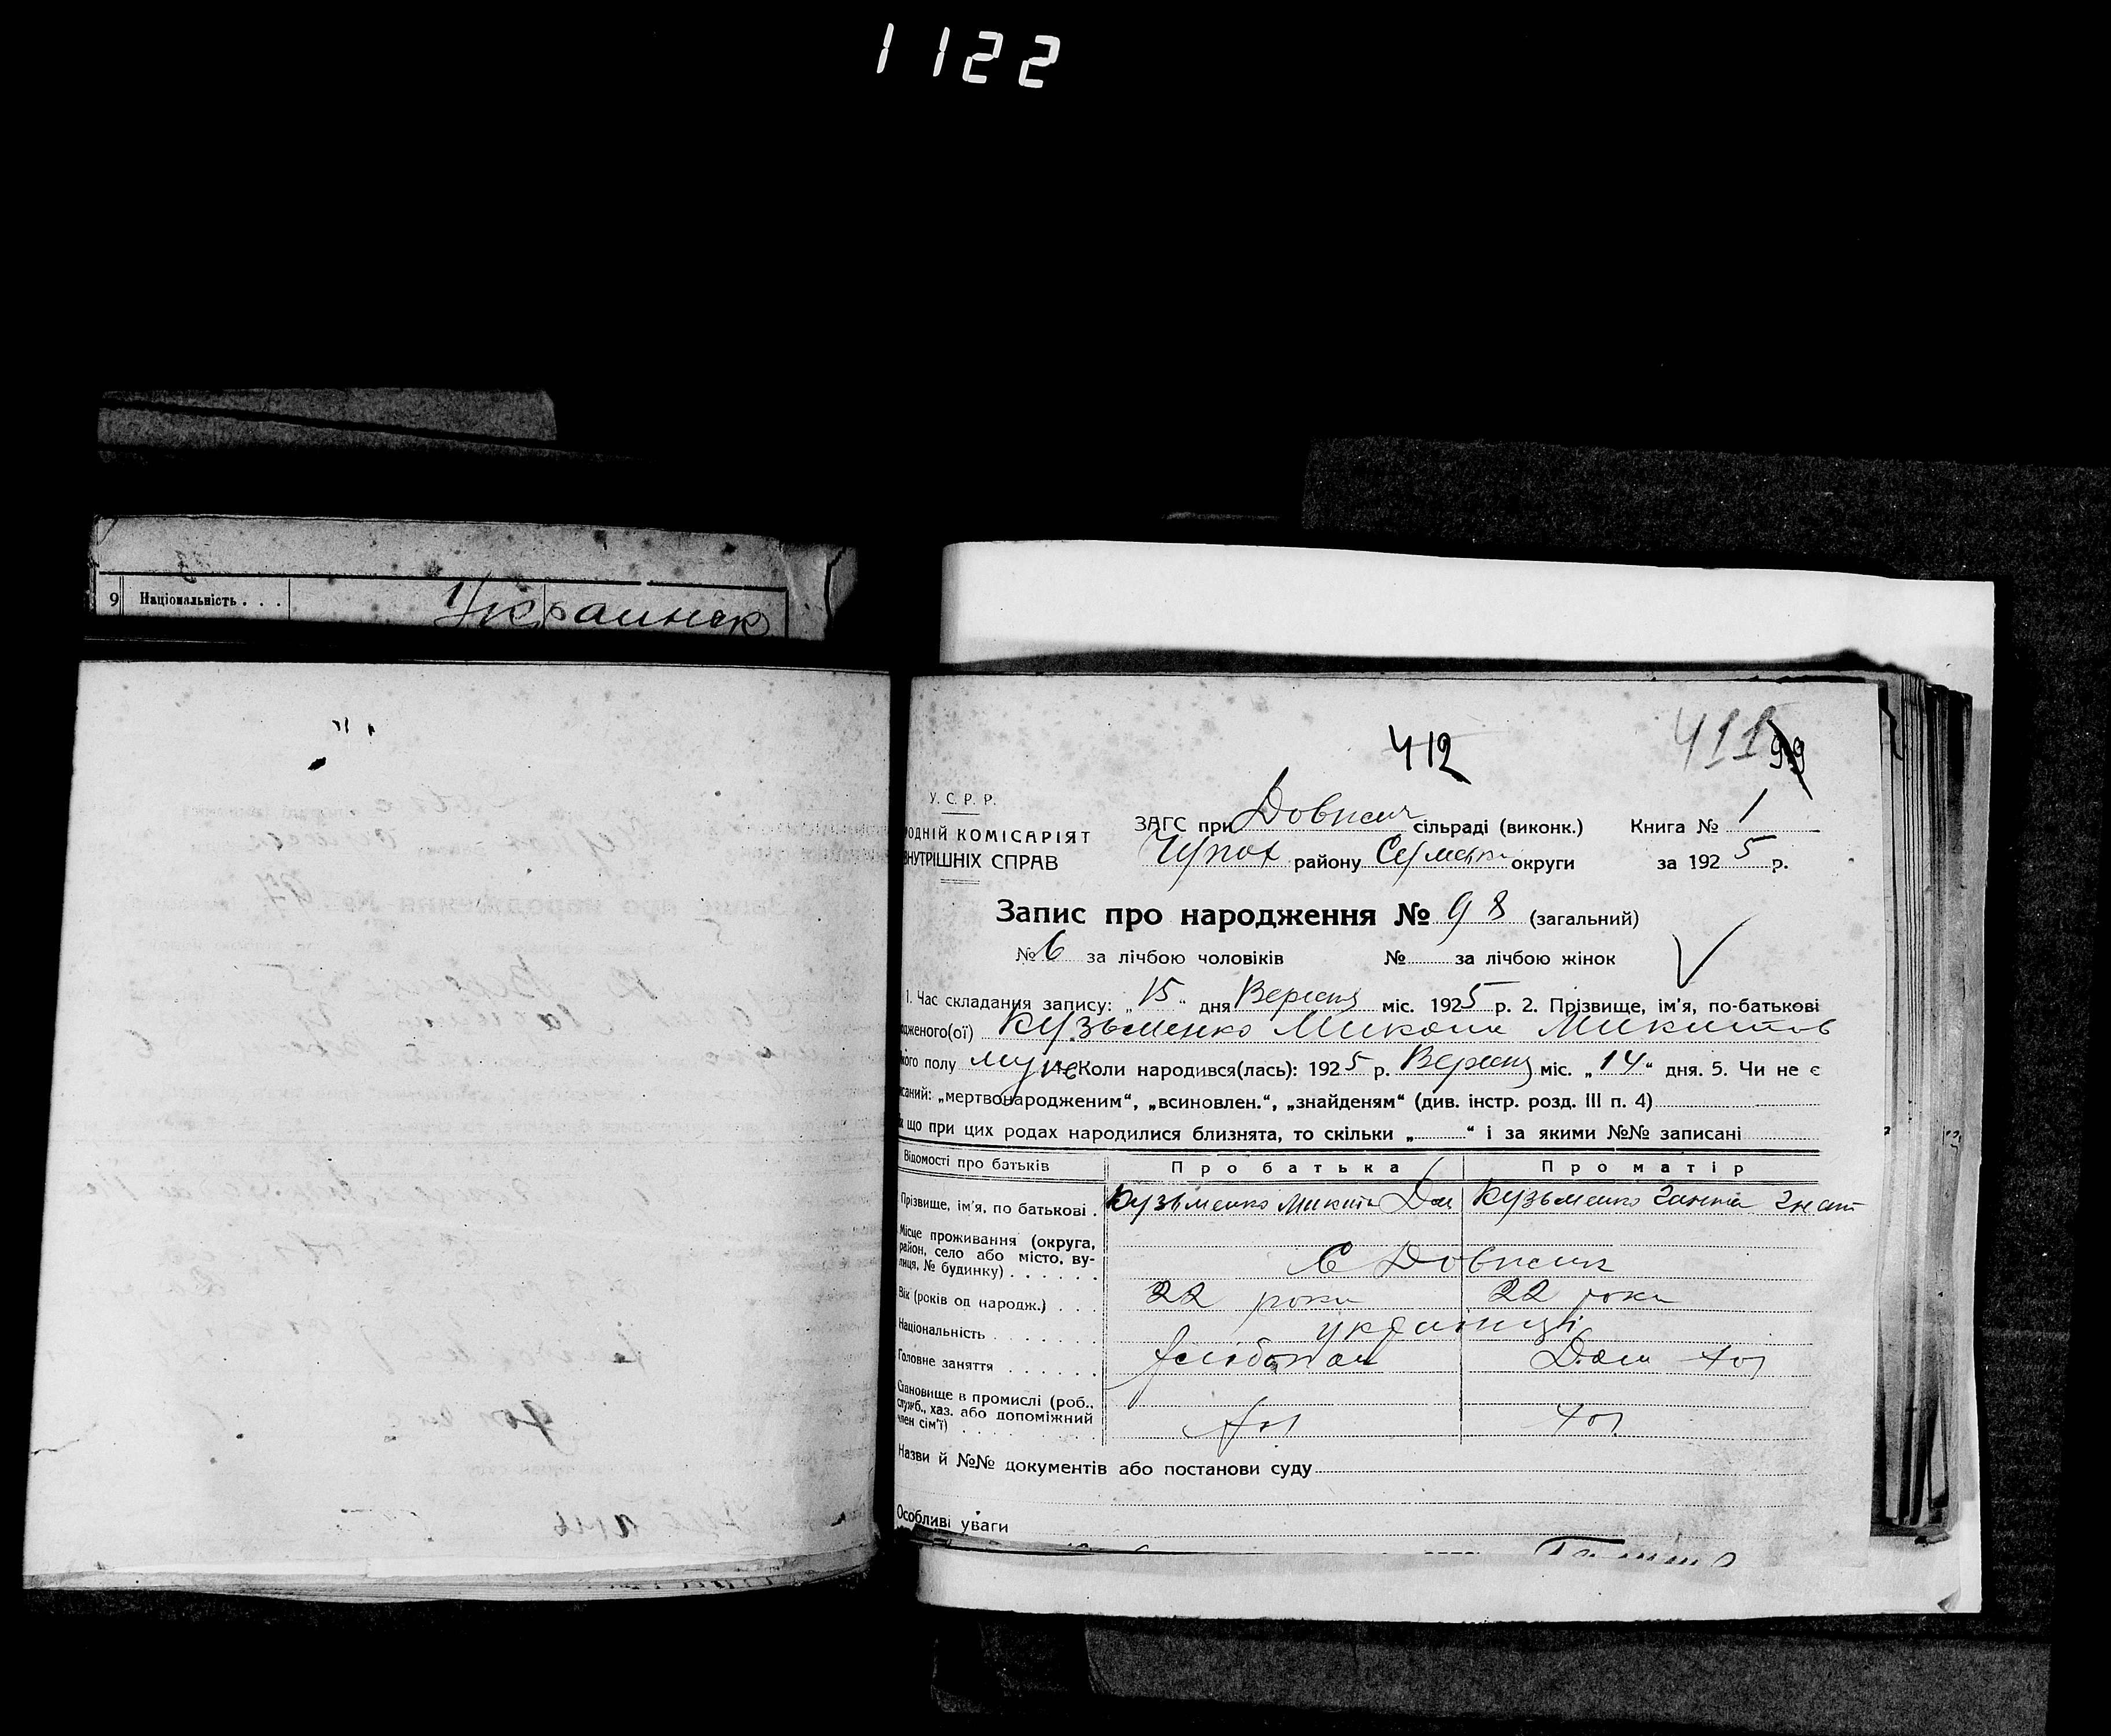 1122
9 Національність . . .
Украинск
412
411
99
У. С. Р. Р.
ОДНІЙ КОМІСАРІЯТ
ВНУТРІШНІХ СПРАВ
ЗАГС при Довжик сільраді (виконк.) Книга № 1
Чупах району Сумськи округи за 1925 р.
Запис про народження № 98 (загальний)
№ 6 за лічбою чоловіків № за лічбою жінок
1. Час складання запису: „15“ дня Вересня міс. 1925 р. 2. Прізвище, ім'я, по-батькові
одженого(ої) Кузьменко Микола Микитов
кого полу муж Коли народився(лась): 1925 р. Вересня міс. „14“ дня. 5. Чи не є
саний: „мертвонародженим“, „всиновлен.“, „знайденям“ (див. інстр. розд. III п. 4)
що при цих родах народилися близнята, то скільки „ “ і за якими №№ записані
Відомості про батьків Про батька Про матір
Прізвище, ім'я, по батькові . Кузьменко Микита Дем Кузьменко Ганна Гнат
Місце проживання (округа, район, село або місто, вулиця, № будинку) . . . . . . С Довжик
Вік (років од народж.) . . . 22 роки 22 роки
Національність . . . . . . . українці
Головне заняття . . . . . . Дом хоз
Становище в промислі (роб., служб., хаз. або допоміжний член сім'ї) . . . . . . . хоз хоз
Назви й №№ документів або постанови суду
Особливі уваги